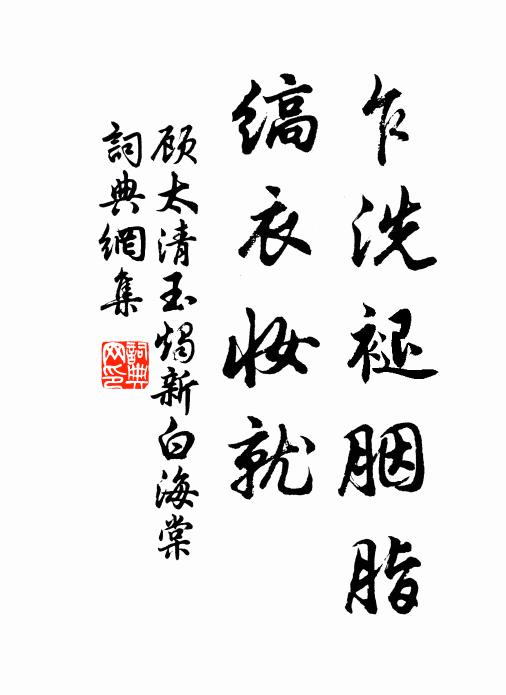 乍洗褪胭脂
缟衣妆就
顾太清玉燭新白海棠
詞典網集
詞典網印